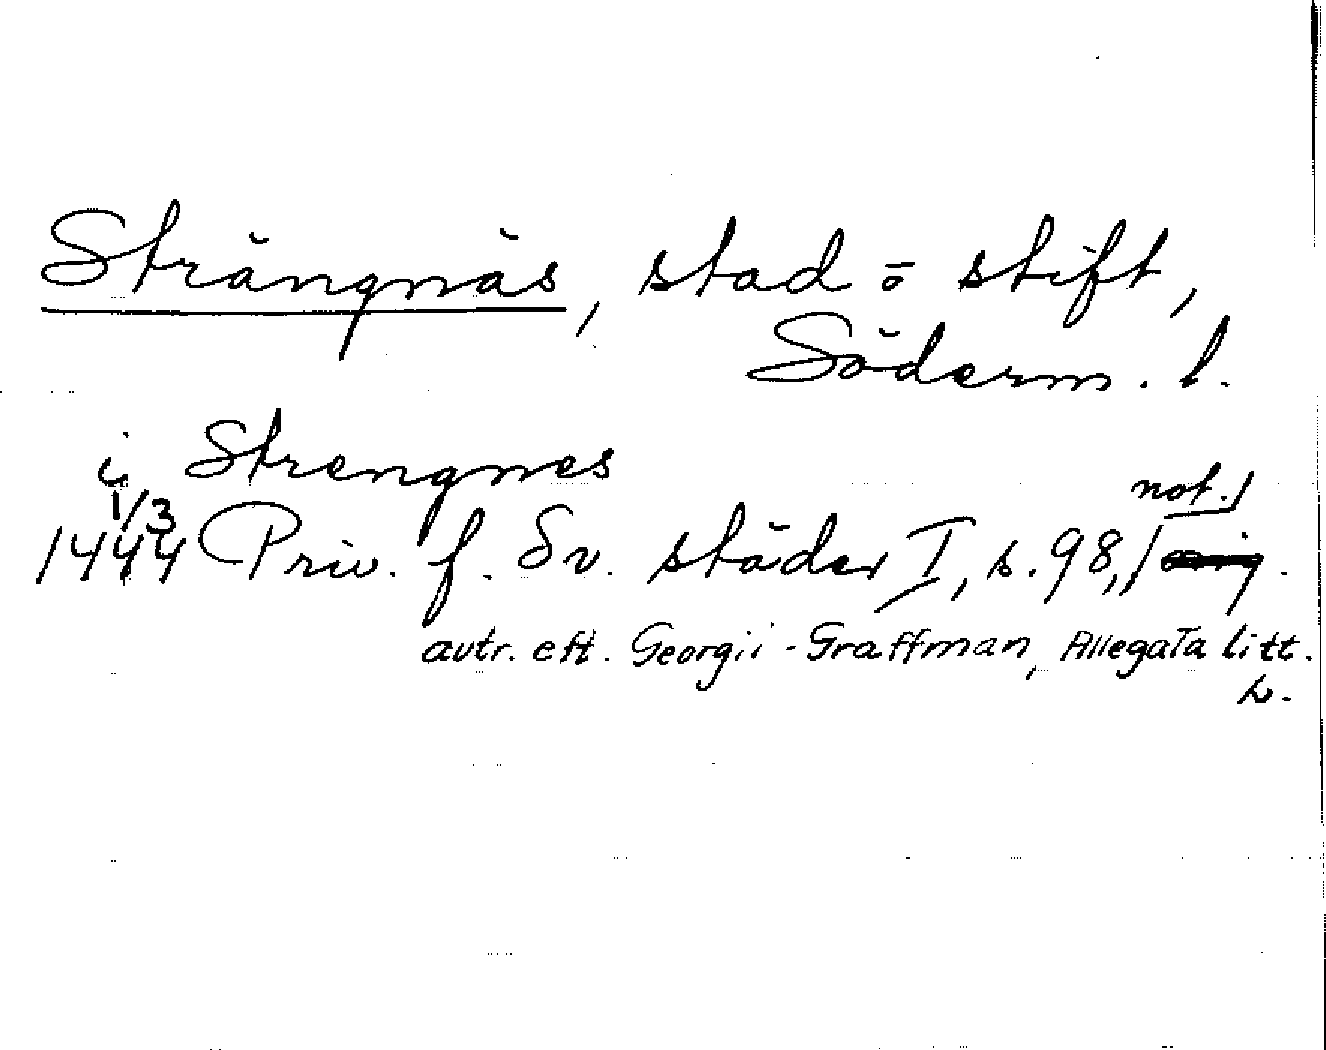 Strängnäs, stad o stift,
Söderm. l.
i Strengnes
1/3 not.
1444 Priv. f. Sv. städer I, s. 98, .
avtr. eft. Georgii-Graffman, Allegata litt.